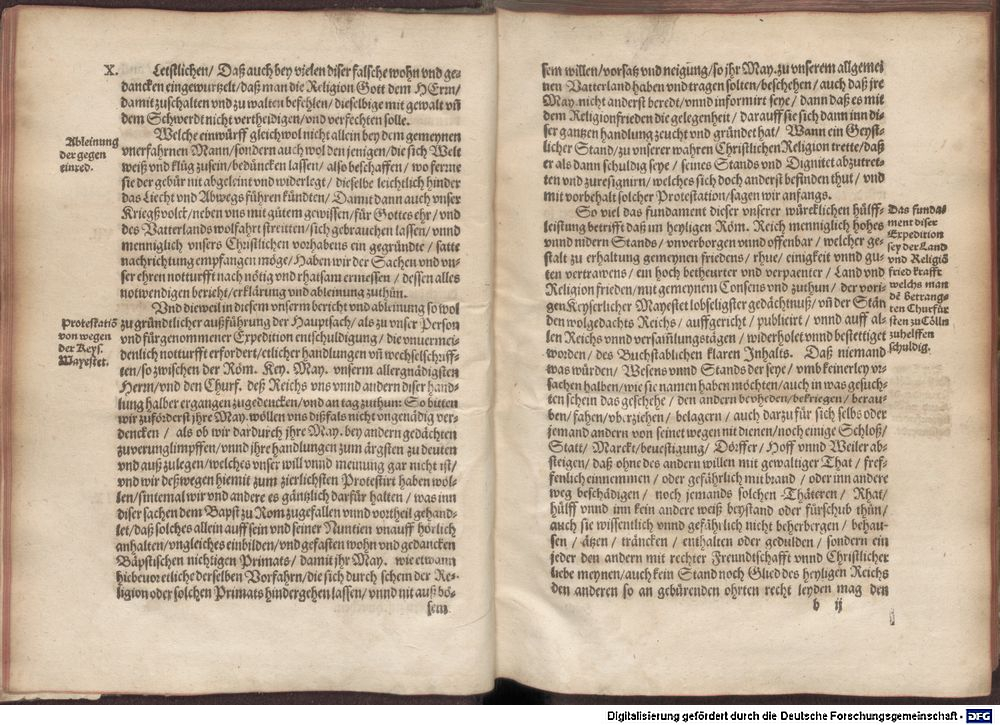 X. Letstlichen/ Daß auch bey vielen diser falsche wohn vnd ge-
dancken eingewurtzelt/ daß man die Religion Gott dem HErrn/
damit zuschalten vnd zu walten befehlen/ dieselbige mit gewalt vñ
dem Schwerdt nicht vertheidigen/ vnd verfechten solle.
Ableinung
der gegen
einred.
Welche einwürff gleichwol nicht allein bey dem gemeynen
vnerfahrnen Mann/ sondern auch wol den jenigen/ die sich Welt
weiß vnd klüg zusein/ bedüncken lassen/ also beschaffen/ wo ferrne
sie der gebür nit abgeleint vnd widerlegt/ dieselbe leichtlich hinder
das Liecht vnd Abwegs führen kündten/ Damit dann auch vnser
Kriegßvolck/ neben vns mit gütem gewissen/ für Gottes ehr/ vnd
des Vatterlands wolfahrt streitten/ sich gebrauchen lassen/ vnnd
menniglich vnsers Christlichen vorhabens ein gegründte/ satte
nachrichtung empfangen möge/ Haben wir der Sachen vnd vn-
ser ehren notturfft nach nötig vnd rhatsam ermessen/ dessen alles
notwendigen bericht/ erklärung vnd ableinung zuthün.
Protestatiō
von wegen
der Keys.
Mayestet.
Vnd dieweil in diesem vnserm bericht vnd ableinung so wol
zu gründtlicher außführung der Hauptsach/ als zu vnser Person
vnd fürgenommener Expedition entschuldigung/ die vnuermei-
denlich notturfft erfordert/ etlicher handlungen vñ wechselschriff-
ten/ so zwischen der Röm. Key. May. vnserm allergnädigsten
Herrn/ vnd den Churf. deß Reichs vns vnnd andern diser hand-
lung halber ergangen zugedencken/ vnd an tag zuthun: So bitten
wir zuförderst jhre May. wöllen vns dißfals nicht vngenädig ver-
dencken/ als ob wir dardurch jhre May. bey andern gedächten
zuverunglimpffen/ vnnd jhre handlungen zum ärgsten zu deuten
vnd außzulegen/ welches vnser will vnnd meinung gar nicht ist/
vnd wir deßwegen hiemit zum zierlichsten Protestirt haben wöl-
len/ sintemal wir vnd andere es gäntzlich darfür halten/ was inn
diser sachen dem Bapst zu Rom zugefallen vnnd vortheil gehand-
let/ daß solches allein auff sein vnd seiner Nuntien vnauff hörlich
anhalten/ vngleiches einbilden/ vnd gefasten wohn vnd gedancken
Bäpstischen nichtigen Primats/ damit jhr May. wie etwann
hiebevor etliche derselben Vorfahrn/ die sich durch schein der Re-
ligion oder solchen Primats hindergehen lassen/ vnnd nit auß bö-
sem
sem willen/ vorsatz vnd neigung/ so jhr May. zu vnserem allgemei
nen Vatterland haben vnd tragen solten/ beschehen/ auch daß jre
May. nicht anderst beredt/ vnnd informirt seye/ dann daß es mit
dem Religionfrieden die gelegenheit/ darauff sie sich dann inn di-
ser gantzen handlung zeucht vnd gründet hat/ Wann ein Geyst-
licher Stand/ zu vnserer wahren Christlichen Religion trette/ daß
er als dann schuldig seye/ seines Stands vnd Dignitet abzutret-
ten vnd zuresignirn/ welches sich doch anderst befinden thut/ vnd
mit vorbehalt solcher Protestation/ sagen wir anfangs.
So viel das fundament dieser vnserer würcklichen hülff-
leistung betrifft daß im heyligen Röm. Reich menniglich hohes
vnnd nidern Stands/ vnverborgen vnnd offenbar/ welcher ge-
stalt zu erhaltung gemeynen friedens/ rhue/ einigkeit vnnd gu-
ten vertrawens/ ein hoch betheurter vnd verpaenter/ Land vnd
Religion frieden/ mit gemeynem Consens vnd zuthun/ der vori-
gen Keyserlicher Mayestet lobseligster gedächtnuß/ vñ der Stän
den wolgedachts Reichs/ auffgericht/ publicirt/ vnnd auff al-
len Reichs vnnd versam̃lungstägen/ widerholet vnnd bestettiget
worden/ des Buchstablichen klaren Inhalts. Daß niemand
was würden/ Wesens vnnd Stands der seye/ vmb keinerley vr-
sachen halben/ wie sie namen haben möchten/ auch in was gesuch-
ten schein das geschehe/ den andern bevheden/ bekriegen/ berau-
ben/ fahen/ vberziehen/ belägern/ auch darzu für sich selbs oder
jemand andern von seinet wegen nit dienen/ noch einige Schloß/
Statt/ Marckt/ beuestigung/ Dörffer/ Hoff vnnd Weiler ab-
steigen/ daß ohne des andern willen mit gewaltiger That/ fref-
fenlich einnemmen/ oder gefährlich mit brand/ oder inn andere
weg beschädigen/ noch jemands solchen Thäteren/ Rhat/
hülff vnnd inn kein andere weiß beystand oder fürschub thün/
auch sie wissentlich vnnd gefährlich nicht beherbergen/ behau-
sen/ ätzen/ träncken/ enthalten oder gedulden/ sondern ein
jeder den andern mit rechter Freundtschafft vnnd Christlicher
liebe meynen/ auch kein Stand noch Glied des heyligen Reichs
den anderen so an gebürenden ohrten recht leyden mag den
b ij
Das funda-
ment diser
Expedition
sey der Land
vnd Religiō
fried krafft
welchs man
dē betrang-
tē Churfür
sten zu Cölln
zuhelffen
schuldig.
Digitalisierung gefördert durch die Deutsche Forschungsgemeinschaft - DFG